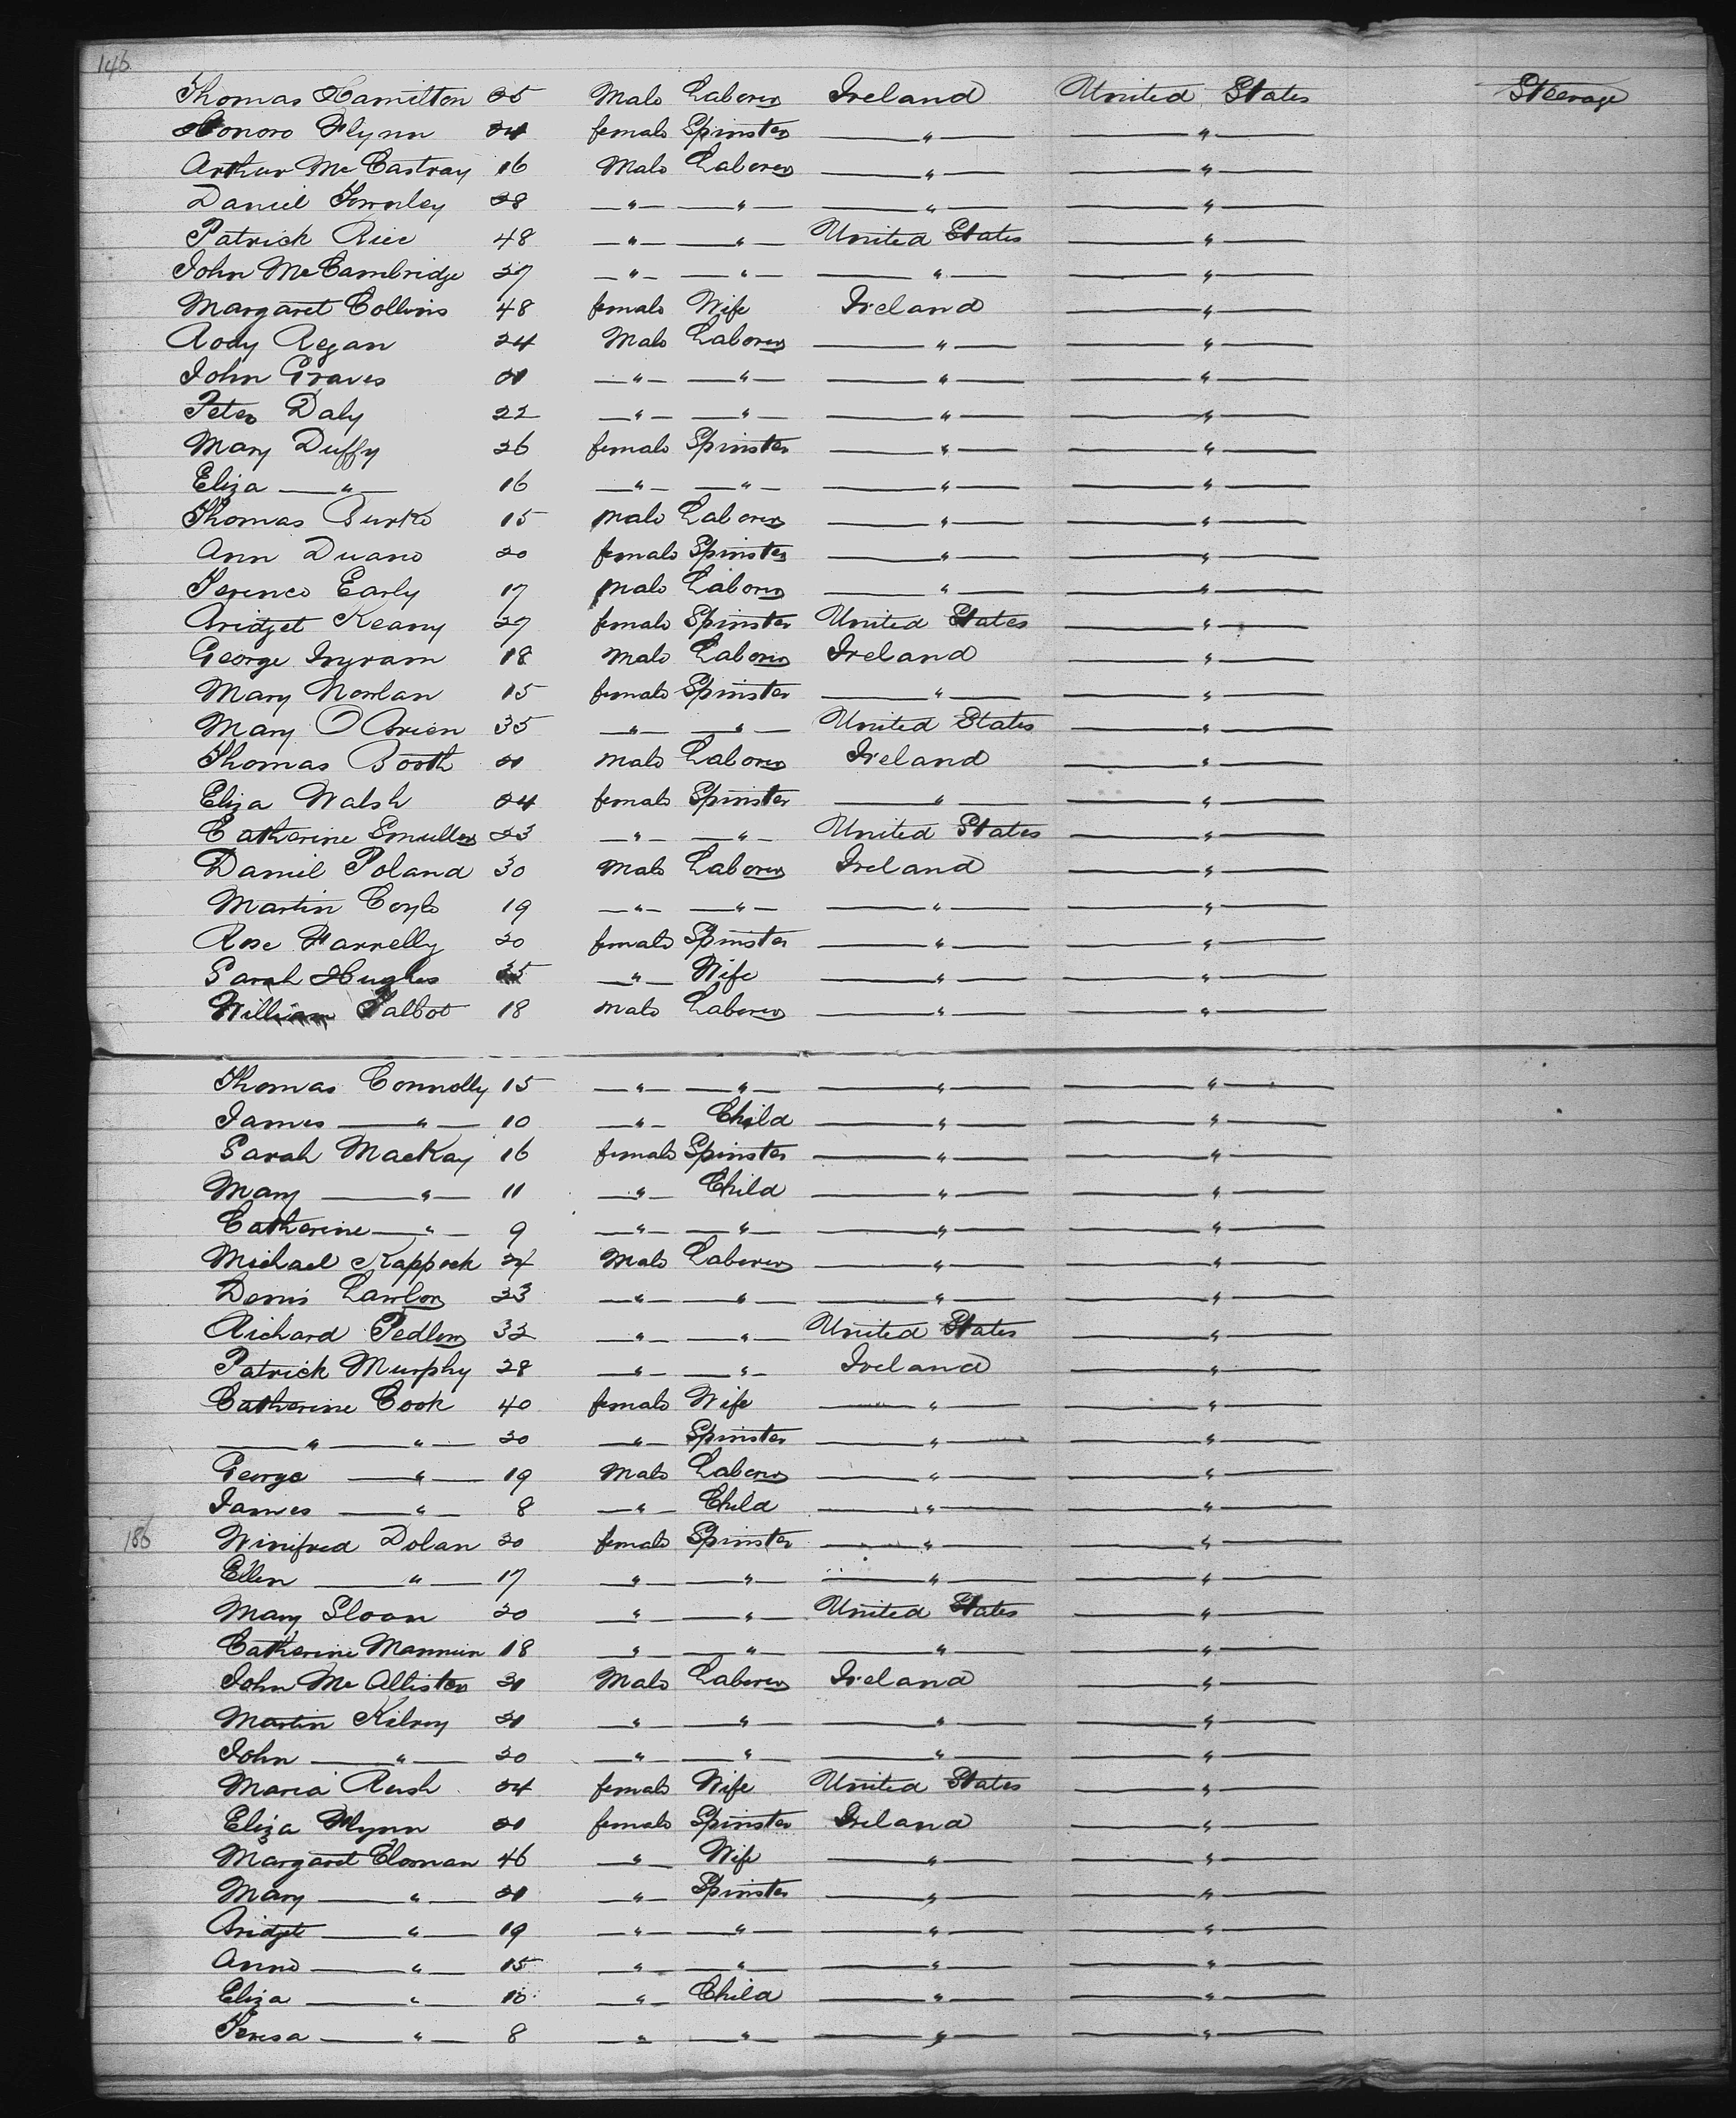 146
Thomas Hamilton 25 Male Laborer Ireland United States Steerage
Honoro Flynn 24 female Spinster — " — — " —
Arthur Mc Castray 16 Male Laborer — " — — " —
Daniel Townley 28 — " — — " — — " — — " —
Patrick Rice 48 — " — — " — United States — " —
John McCambridge 27 — " — — " — — " — — " —
Margaret Collins 48 female Wife Ireland — " —
Rody Regan 24 Male Laborer — " — — " —
John Graves 21 — " — — " — — " — — " —
Peter Daly 22 — " — — " — — " — — " —
Mary Duffy 26 female Spinster — " — — " —
Eliza — " — 16 — " — — " — — " — — " —
Thomas Burke 15 Male Laborer — " — — " —
Ann Duane 20 female Spinster — " — — " —
Terence Early 17 Male Laborer — " — — " —
Bridget Keany 27 female Spinster United States — " —
George Ingram 18 Male Laborer Ireland — " —
Mary Nowlan 15 female Spinster — " — — " —
Mary O Brien 35 — " — — " — United States — " —
Thomas Booth 21 Male Laborer Ireland — " —
Eliza Walsh 24 female Spinster — " — — " —
Catherine Smullen 23 — " — — " — United States — " —
Daniel Poland 30 Male Laborer Ireland — " —
Martin Coyle 19 — " — — " — — " — — " —
Rose Farrelly 20 female Spinster — " — — " —
Sarah Hughes — " Wife — " — — " —
William Talbot 18 Male Laborer — " — — " —
Thomas Connolly 15 — " — — " — — " — — " —
James — " — 10 — " — Child — " — — " —
Sarah MacKay 16 female Spinster — " — — " —
Mary — " — 11 — " — Child — " — — " —
Catherine — " — 9 — " — — " — — " — — " —
Michael Kappock 24 Male Laborer — " — — " —
Denis Lawlor 23 — " — — " — — " — — " —
Richard Pedlor 32 — " — — " — United States — " —
Patrick Murphy 28 — " — — " — Ireland — " —
Catherine Cook 40 female Wife — " — — " —
— " — — " — 20 — " — Spinster — " — — " —
George — " — 19 Male Laborer — " — — " —
James — " — 8 — " — Child — " — — " —
186 Winifred Dolan 20 female Spinster — " — — " —
Ellen — " — 17 — " — — " — — " — — " —
Mary Sloan 20 — " — — " — United States — " —
Catherine Mannion 18 — " — — " — — " — — " —
John Mc Allister 21 Male Laborer Ireland — " —
Martin Kilroy 21 — " — — " — — " — — " —
John — " — 20 — " — — " — — " — — " —
Maria Rush 24 female Wife United States — " —
Eliza Flynn 21 female Spinster Ireland — " —
Margaret Clonan 46 — " — Wife — " — — " —
Mary — " — 21 — " — Spinster — " — — " —
Bridget — " — 19 — " — — " — — " — — " —
Anne — " — 15 — " — — " — — " — — " —
Eliza — " — 10 — " — Child — " — — " —
Teresa — " — 8 — " — — " — — " — — " —